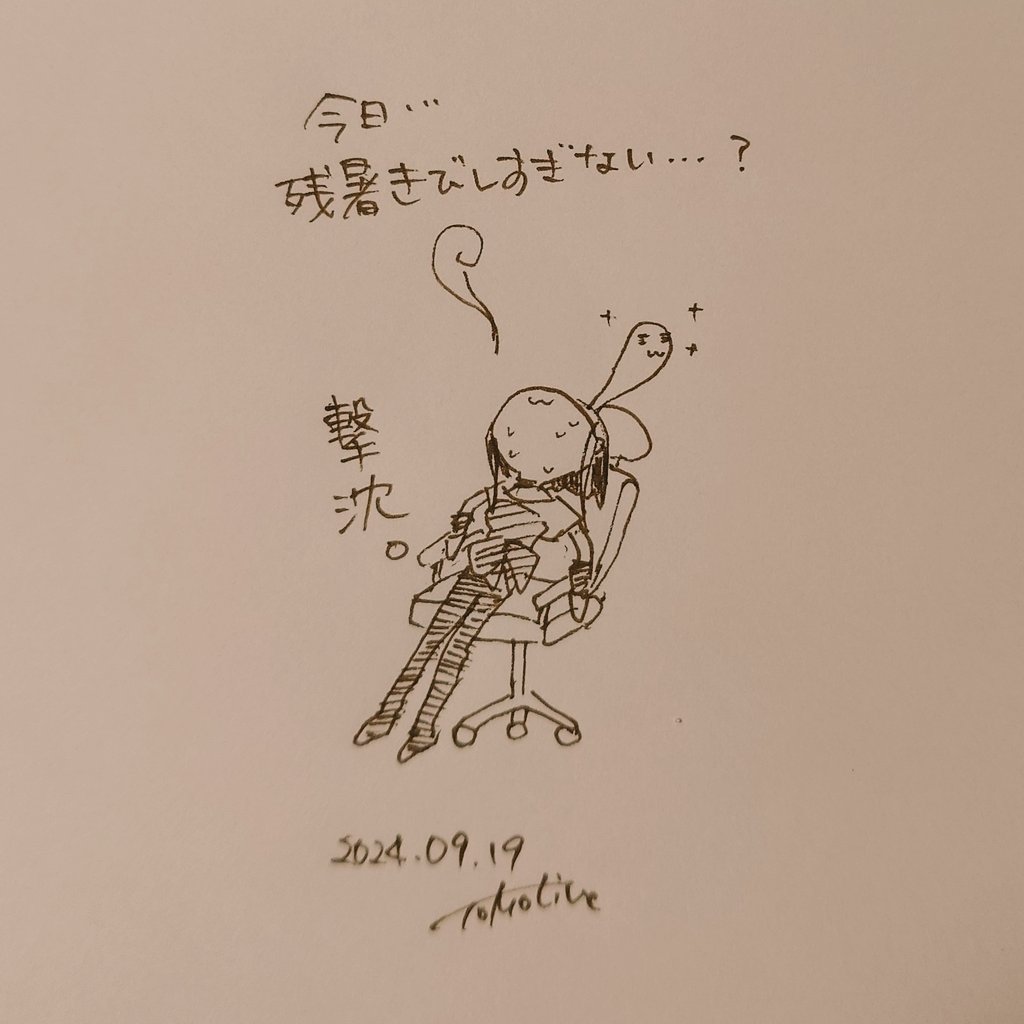 今日…
残暑きびしすぎない…?
撃沈。
2024.09.19